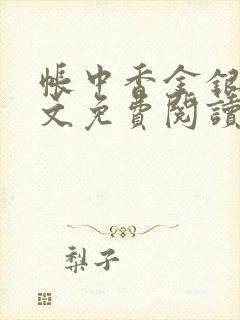 帳中香金銀
文免費閱讀
梨子